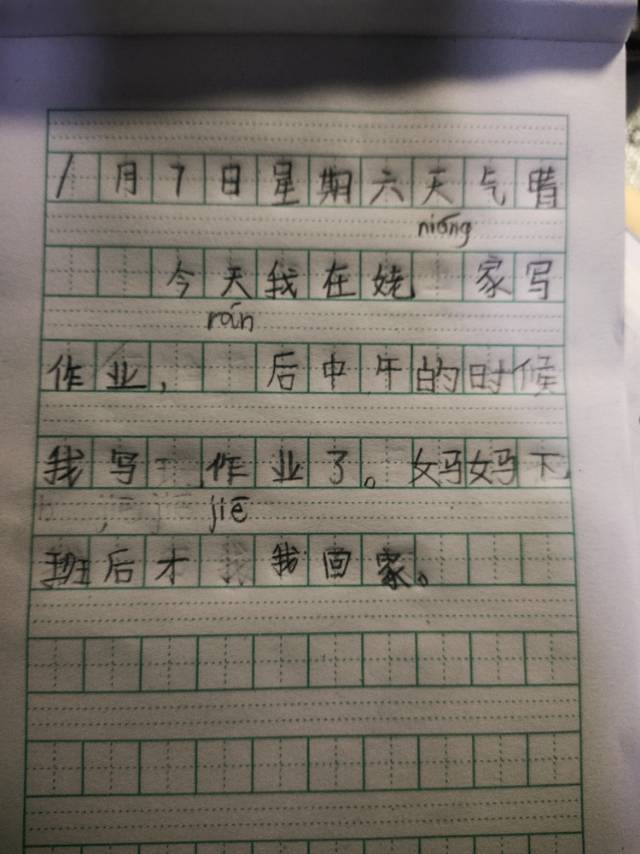 1月7日星期六天气晴
niáng
今天我在姥 家写
rán
作业, 后中午的时候
我写 作业了。妈妈下
jiē
班后才 我回家。